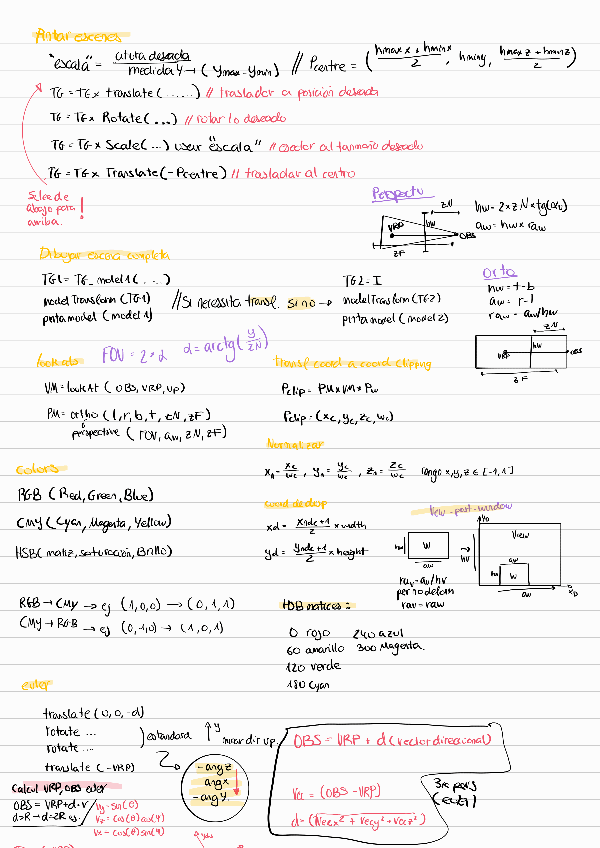 Pintar escenes
"escala" = altura desitjada / medida Y → (Ymax - Ymin) // Pcentre = (hmaxx + hminx / 2, hminy, hmaxz + hminz / 2)
TG = TG x translate (......) // trasladar a posición deseada
TG = TG x Rotate (...) // rotar lo deseado
TG = TG x Scale (...) usar "escala" // escalar al tamaño deseado
TG = TG x Translate (-Pcentre) // trasladar al centro
Se lee de
abajo para
arriba. !
Perspectiva
ZN
VRP
hw
OBS
ZF
hw = 2 x zN x tg(α)
aw = hw x raw
Dibujar escena completa
TG1 = TG_model1 (...)
modelTransform (TG1)
pintamodel (model1)
// Si necessita transf. si no →
TG2 = I
modelTransform (TG2)
pintamodel (model2)
Orto
hw = t - b
aw = r - l
raw = aw/hw
ZN
VRP
hw
OBS
ZF
look ats
FOV = 2 x α
α = arctg (y / ZN)
VM = lookAt (OBS, VRP, up)
PM = ortho (l, r, b, t, zN, zF)
o
perspective (FOV, aw, ZN, ZF)
Transf coord a coord clipping
Pclip = PM x VM x Pw
Pclip = (xc, yc, zc, wc)
Normalizar
xn = xc / wc, yn = yc / wc, zn = zc / wc rango x, y, z ∈ [-1, 1]
colors
RGB (Red, Green, Blue)
CMY (Cyan, Magenta, Yellow)
HSB (matiz, saturación, Brillo)
coord de disp
xd = xndc + 1 / 2 x width
yd = yndc + 1 / 2 x height
View-port-window
hw
W
aw
→
hv
View
aw
hw
W
av
rav = av/hv
per no deform
rav = raw
RGB → CMY → ej (1,0,0) → (0,1,1)
CMY → RGB → ej (0,1,0) → (1,0,1)
HSB matices:
0 rojo 240 azul
60 amarillo 300 Magenta.
120 verde
180 Cyan
euler
translate (0, 0, -d)
rotate ...
rotate ...
translate (-VRP)
estandard
y
mirar dir up.
- ang z
ang x
- ang y
OBS = VRP + d (vector direccional)
Vec = (OBS - VRP)
d = (√vecx² + vecy² + vecz²)
Calcul VRP, OBS euler
OBS = VRP + d · v
d > R → d = 2R ej.
Vy = sin(θ)
Vz = cos(θ) cos(φ)
Vx = cos(θ) sin(φ)